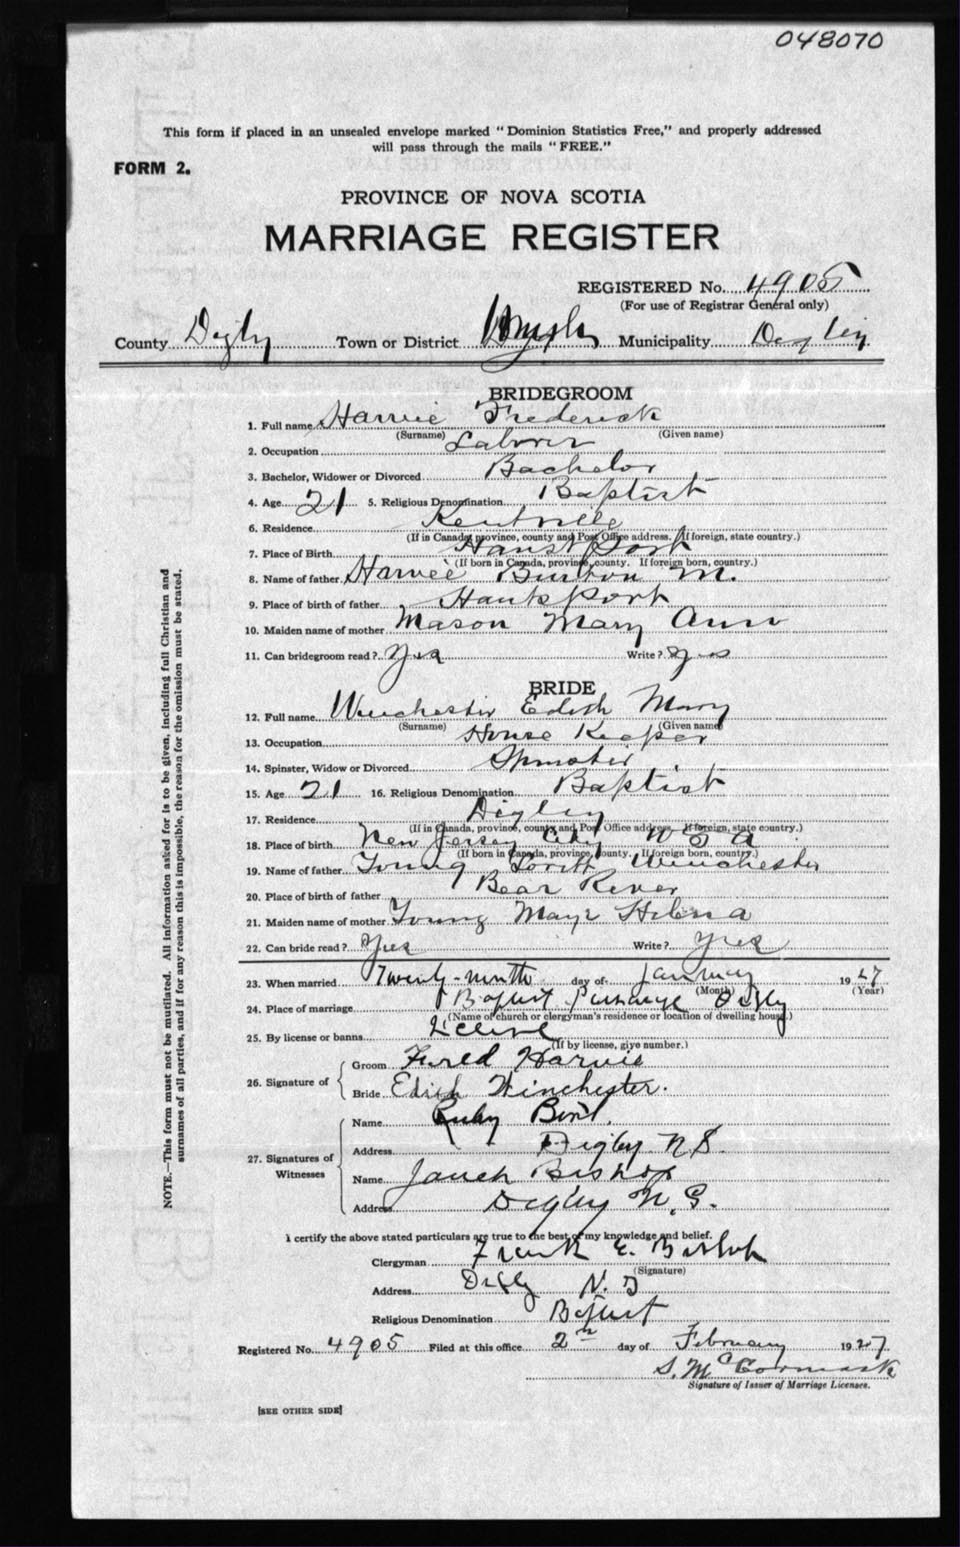 048070
This form if placed in an unsealed envelope marked "Dominion Statistics Free," and properly addressed
will pass through the mails "FREE."
FORM 2.
PROVINCE OF NOVA SCOTIA
MARRIAGE REGISTER
REGISTERED No. 4905
(For use of Registrar General only)
County Digby Town or District Digby Municipality Digby
BRIDEGROOM
1. Full name Harvie Frederick
(Surname) (Given name)
2. Occupation Laborer
3. Bachelor, Widower or Divorced Bachelor
4. Age 21 5. Religious Denomination Baptist
6. Residence Kentville
(If in Canada, province, county and Post Office address. If foreign, state country.)
7. Place of Birth Hantsport
(If born in Canada, province, county. If foreign born, country.)
8. Name of father Harvie Burton M.
9. Place of birth of father Hantsport
10. Maiden name of mother Mason Mary Ann
11. Can bridegroom read? Yes Write? Yes
BRIDE
12. Full name Winchester Edith Mary
(Surname) (Given name)
13. Occupation House Keeper
14. Spinster, Widow or Divorced Spinster
15. Age 21 16. Religious Denomination Baptist
17. Residence Digby
(If in Canada, province, county and Post Office address. If foreign, state country.)
18. Place of birth New Jersey City U S A
(If born in Canada, province, county. If foreign born, country.)
19. Name of father Young Winchester
20. Place of birth of father Bear River
21. Maiden name of mother Young Helena
22. Can bride read? Yes Write? Yes
23. When married Twenty-ninth day of January 1927
(Month) (Year)
24. Place of marriage Baptist Parsonage Digby
(Name of church or clergyman's residence or location of dwelling house.)
25. By license or banns License
(If by license, give number.)
26. Signature of
Groom Fred Harvie
Bride Edith Winchester.
27. Signatures of Witnesses
Name Ruby
Address Digby N.S.
Name Bishop
Address Digby N.S.
I certify the above stated particulars are true to the best of my knowledge and belief.
Clergyman Frank E. Bishop
(Signature)
Address Digby N.S
Religious Denomination Baptist
Registered No. 4905 Filed at this office 2n day of February 1927
S. McCormack
Signature of Issuer of Marriage Licenses.
[SEE OTHER SIDE]
NOTE.—This form must not be mutilated. All information asked for is to be given, including full Christian and
surnames of all parties, and if for any reason this is impossible, the reason for the omission must be stated.